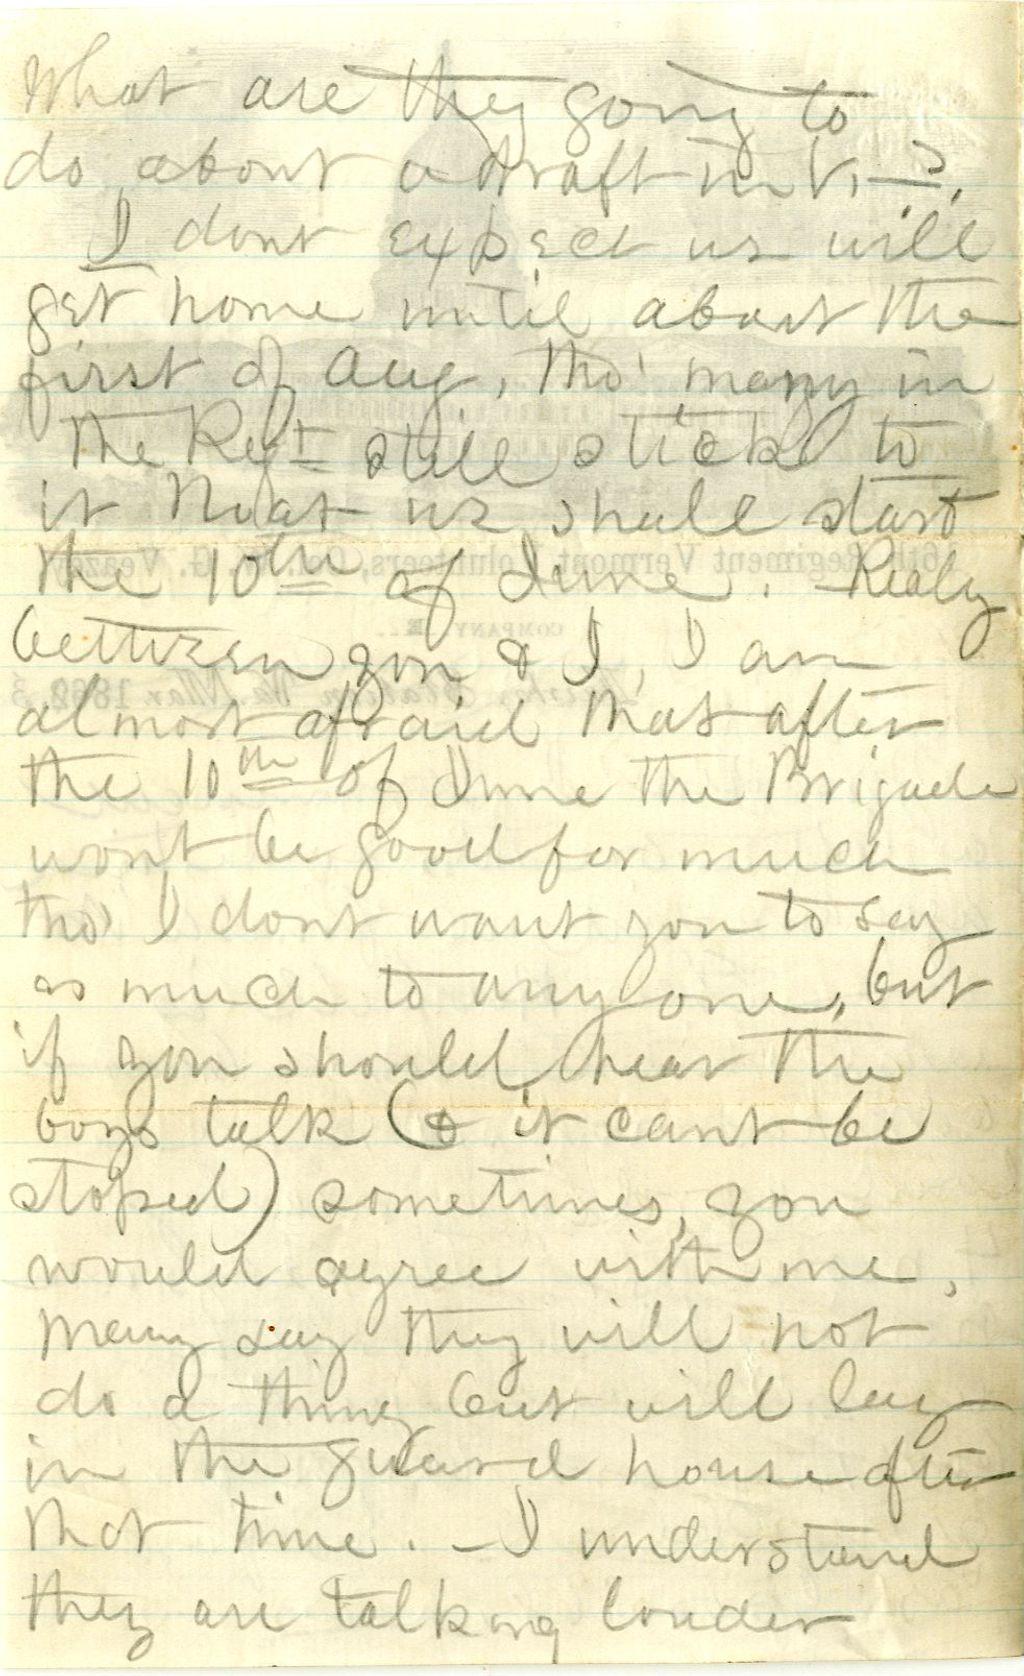 What are they going to
do about a draft in Vt—?
I dont expect we will
get home until about the
first of Aug, tho' many in
the Regt still stick to
it that we shall start
the 10th of June. Realy
between you & I, I am
almost afraid that after
the 10th of June the Brigade
wont be good for much
tho' I dont want you to say
as much to any one, but
if you should hear the
boys talk (& it cant be
stoped) sometimes, you
would agree with me,
Many say they will not
do a thing but will lay
in the guard house after
that time. – I understand
they are talking louder
16th Regiment Vermont Volunteers, Col. W. G. Veazey,
COMPANY